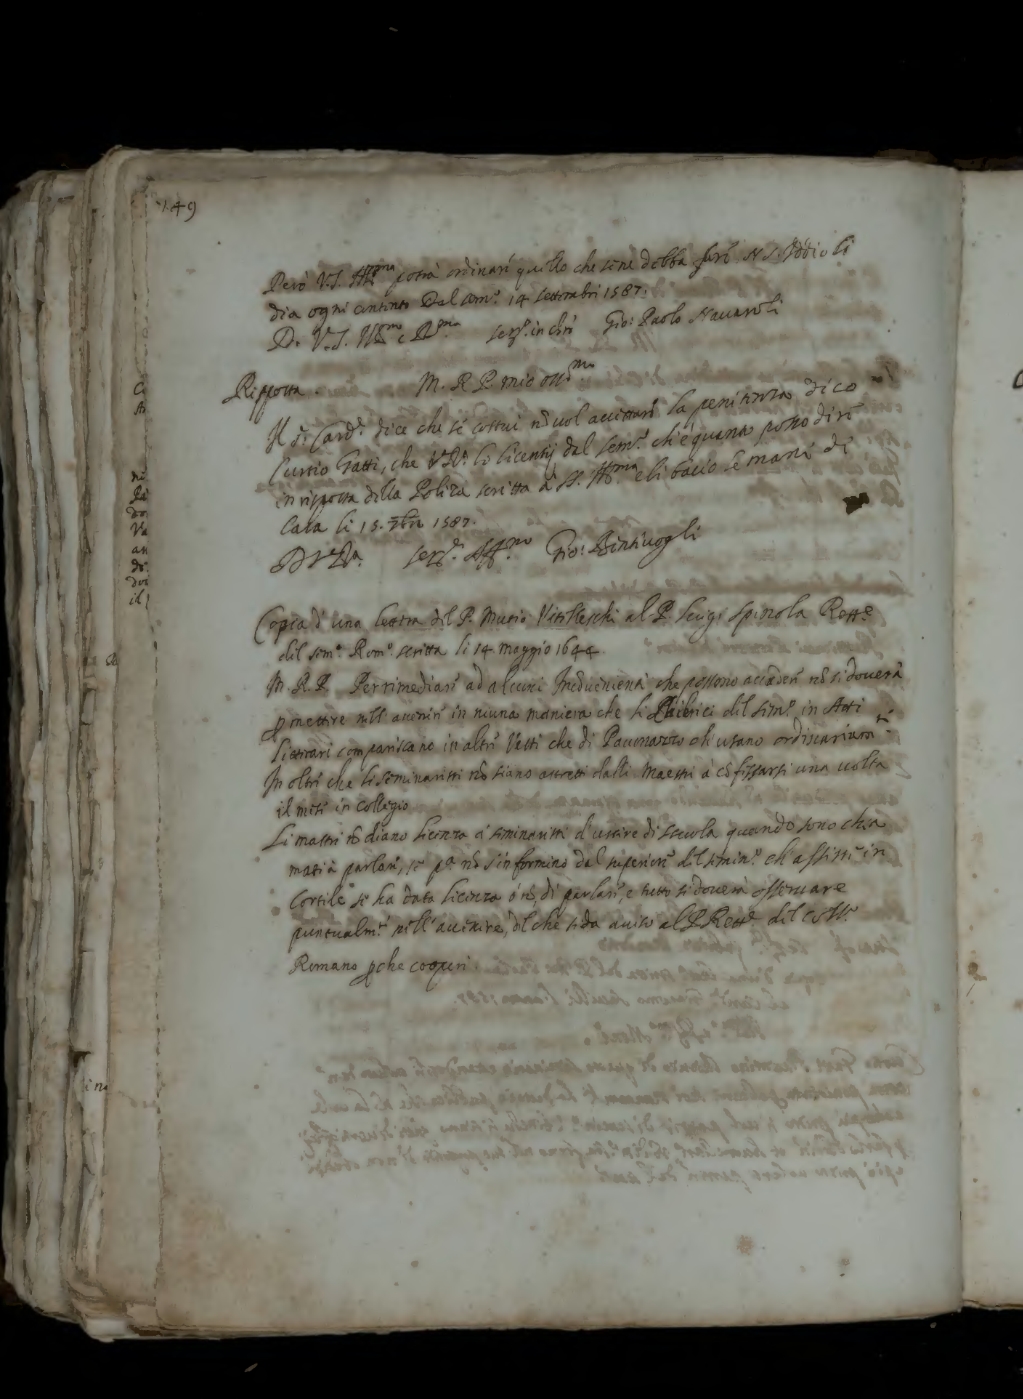 149
Però V.S. Ill.ma potrà ordinare quello che sene debba fare N.S. Iddio li
dia ogni contento Dal sem.o 14 settembri 1587.
D. V.S. Ill.ma e R.ma ser.e in chro Gio: Paolo Navaroli
Risposta. M. R. P. mio oss.mo
Il S.r Card.e dice che se costui nõ vol accettare la penitenza dico
Curtio Gatti, che V.R. lo licentij dal sem.o ch'è quanto posso dire
in risposta della Poliza scritta à S. Ill.ma e li bacio le mani di
Casa li 15. 7bre 1587.
D V.R. ser.e Aff.mo Gio: Bentivogli
Copia d'una lettera del P. Mutio Vitelleschi al P. Luigi Spinola Rett.e
del sem.o Rom.o scritta li 14 maggio 1644
M. R. P. Per rimediare ad alcuni che possono accadere nõ si doverà
permettere nell'avenire in niuna maniera che li Chierici del sem.o in Atti
Letterari compariscano in altre Vesti che di Pavonazzo ch'usano ordinariam.te
In oltre che li seminaristi nõ siano astretti dalli Maestri à cõfessarsi una volta
il mese in Collegio
Li mastri nõ diano licenza à seminaristi d'uscire di scuola quando sono chia
mati à parlare, se p.a nõ s'informino dal superiore del semin.o ch'assiste in
Cortile se ha data licenza ò nõ, di parlare, e tutto si doverà osservare
puntualm.te nell'avenire, del che si da aviso al P. Rett.e del Coll.o
Romano perche cooperi